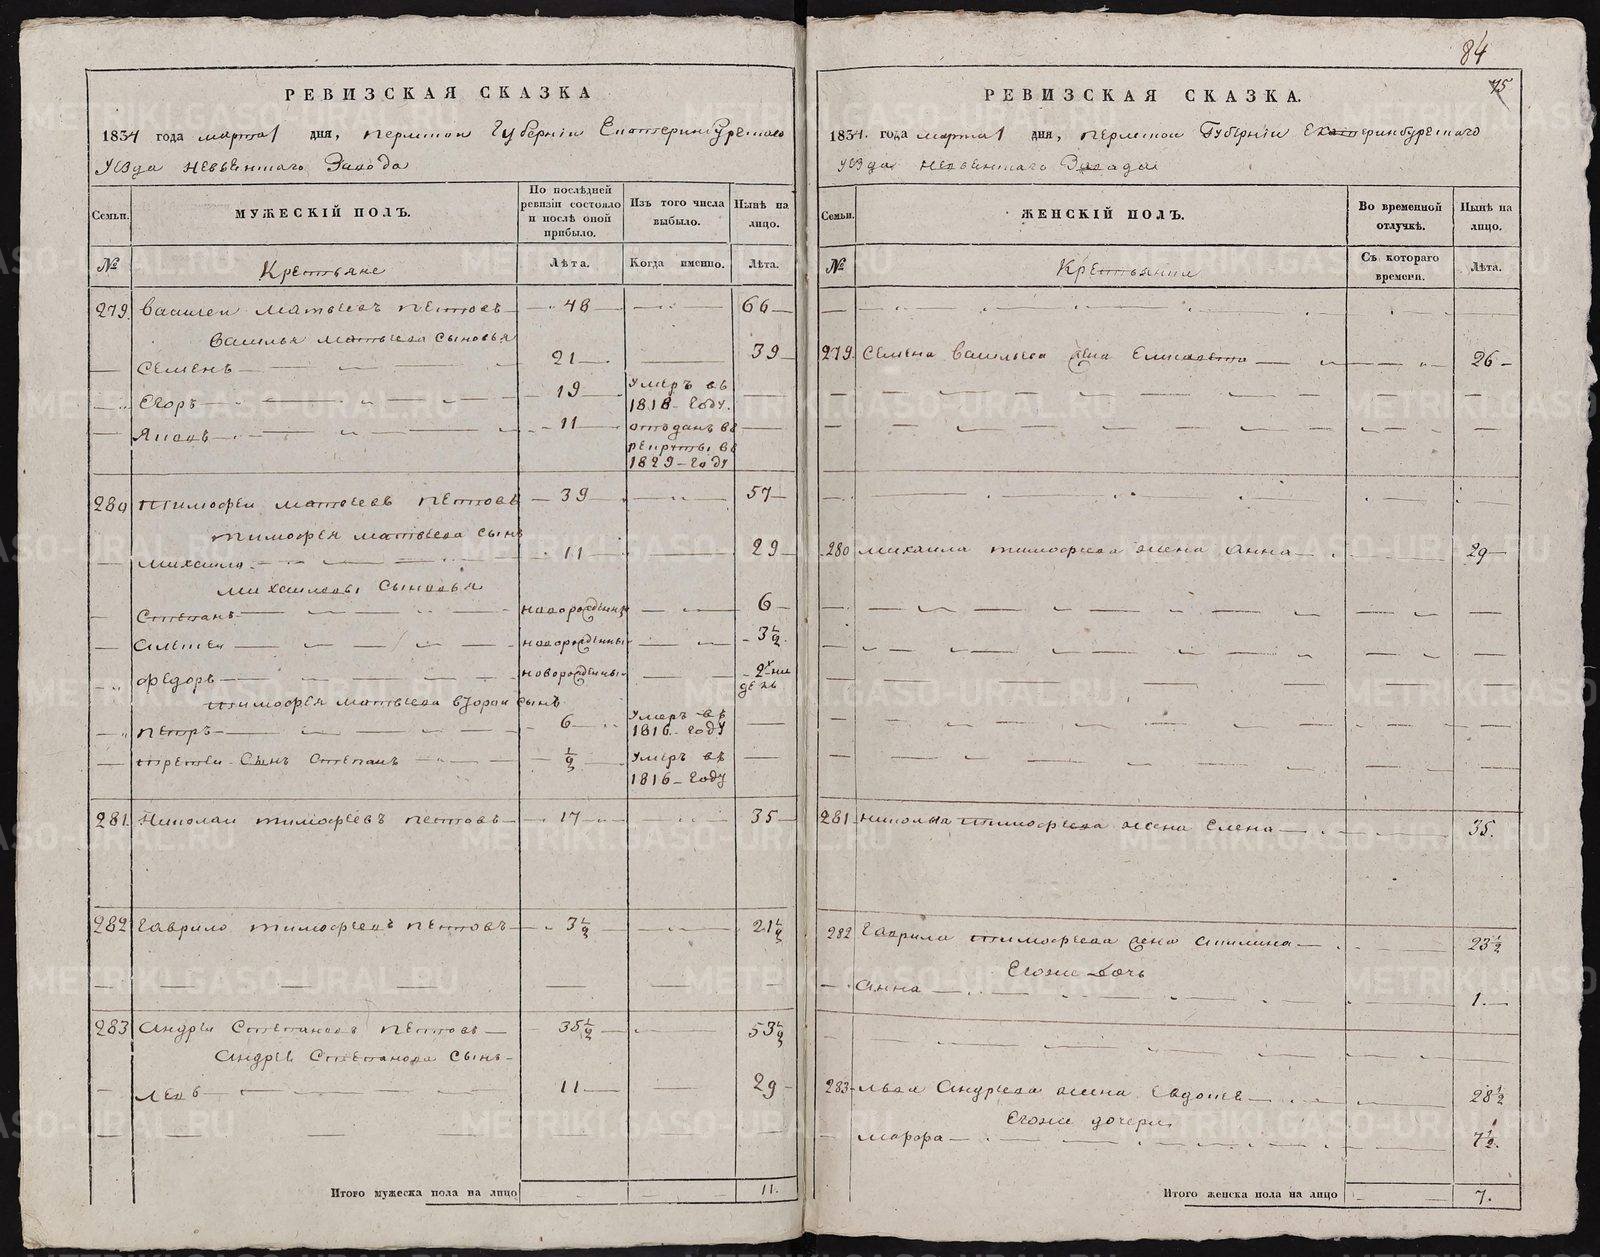 84
РЕВИЗСКАЯ СКАЗКА
1834 года марта 1 дня, пермскои Губернiи Екатеринбургскаго
уезда невьянскаго Завода
Семьи.
МУЖЕСКІЙ ПОЛЪ.
По послѣдней
ревизіи состояло
и послѣ оной
прибыло.
Изъ того числа
выбыло.
Нынѣ на
лицо.
№
Крестьяне
Лѣта.
Когда именно.
Лѣта.
279. Василеи матвеевъ пѣтовъ 48 66
Василья матвеева сыновья
Семенъ 21 39
Егоръ 19 Умеръ въ
1818 году.
Яковъ 11 отъданъ въ
рекруты въ
1829 году
280 тимофеи матвеевъ пѣтовъ 39 57
тимофея матвеева сынъ
михаило 11 29
михаиловы сыновья
Степанъ новорожденныи 6
Алексеи новорожденныи 3½
Федоръ новорожденныи 2 день
тимофея матвеева второи сынъ
петръ 6 Умеръ въ
1816 году
третеи сынъ степанъ ½ Умеръ въ
1816 году
281. Николаи тимофеевъ пѣтовъ 17 35
282 гаврило тимофеевъ пѣтовъ 3½ 21½
283 Андреи Степановъ пѣтовъ 35½ 53½
Андрея Степанова сынъ
Левъ 11 29
Итого мужеска пола на лицо 11.
75
РЕВИЗСКАЯ СКАЗКА.
1834 года марта 1 дня, пермскои Губернiи Екатеринбургскаго
уезда невьянскаго Завода
Семьи.
ЖЕНСКІЙ ПОЛЪ.
Во временной
отлучкѣ.
Нынѣ на
лицо.
№
Крестьянки
Съ котораго
времени.
Лѣта.
279. Семена васильева жена Елисавета 26
280 михаила тимофеева жена Анна 29
281 николая тимофеева жена Елена 35.
282 гаврила тимофеева жена Акилина 23½
Егожи дочь
Анна 1.
283 льва Андреева жена Евдокея 28½
Егожи дочери
марфа 7½.
Итого женска пола на лицо 7.
METRIKI.GASO-URAL.RU